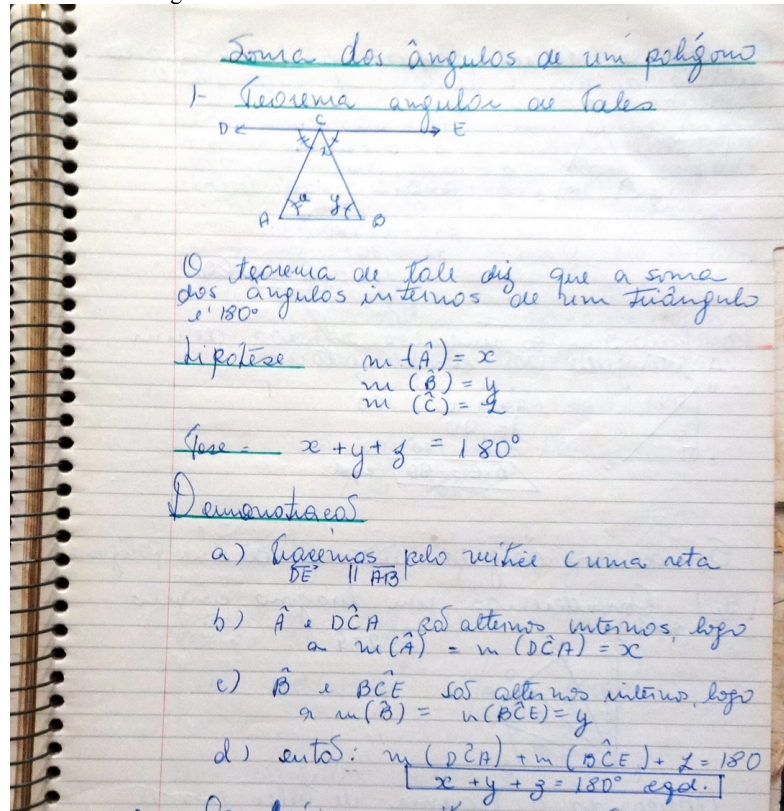 Soma dos ângulos de um polígono
1- Teorema angular de Tales
D C E
x z y
x y
A B
O teorema de Tale diz que a soma
dos ângulos internos de um triângulo
é 180°
Hipótese m (Â) = x
m (B̂) = y
m (Ĉ) = z
Tese = x + y + z = 180°
Demonstração
a) Tracemos pelo vértice C uma reta
DE || AB
b) Â e DĈA são alternos internos, logo
a m(Â) = m (DĈA) = x
c) B̂ e BĈE são alternos interno, logo
a m(B̂) = m(BĈE) = y
d) então: m (DĈA) + m (BĈE) + z = 180
x + y + z = 180° cqd.